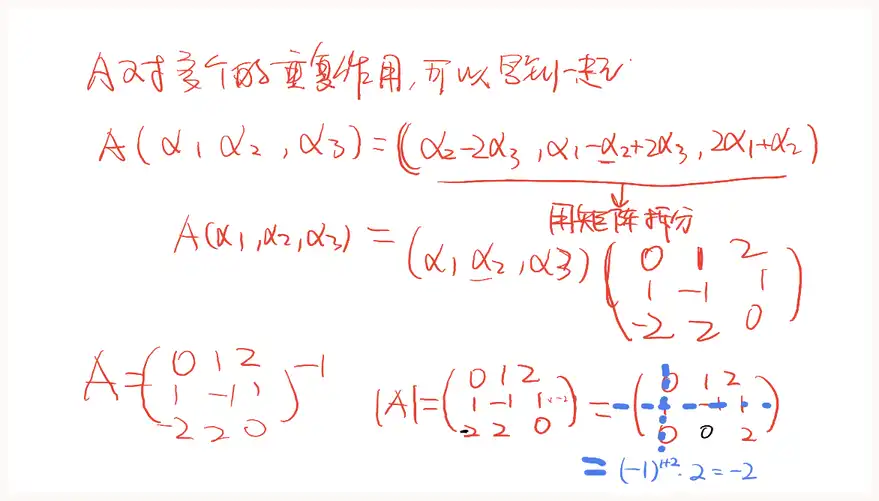 A对多个的重复作用,可以写到一起
A(α1 α2,α3)=(α2-2α3,α1-α2+2α3,2α1+α2)
用矩阵拆分
A(α1,α2,α3)=(α1 α2,α3)(0 1 2
1 -1 1
-2 2 0)
A=(0 1 2
1 -1 1
-2 2 0)^-1
|A|=(0 1 2
1 -1 1 ×-2
-2 2 0)
=(0 1 2
1 -1 1
0 0 2)
=(-1)^1+2·2=-2